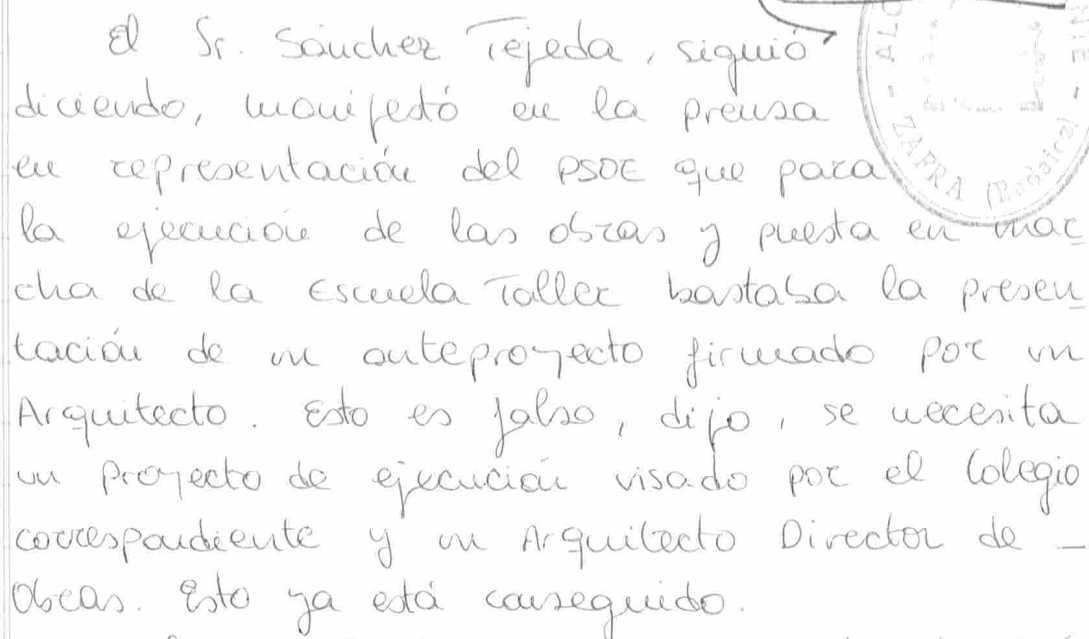 El Sr. Sánchez Tejeda, siguió
diciendo, manifestó en la prensa
en representación del PSOE que para
la ejecución de las obras y puesta en mar
cha de la Escuela Taller bastaba la presen
tación de un anteproyecto firmado por un
Arquitecto. Esto es falso, dijo, se necesita
un Proyecto de ejecución visado por el Colegio
correspondiente y un Arquitecto Director de _
Obras. Esto ya está conseguido.
ZAFRA (Badajoz)